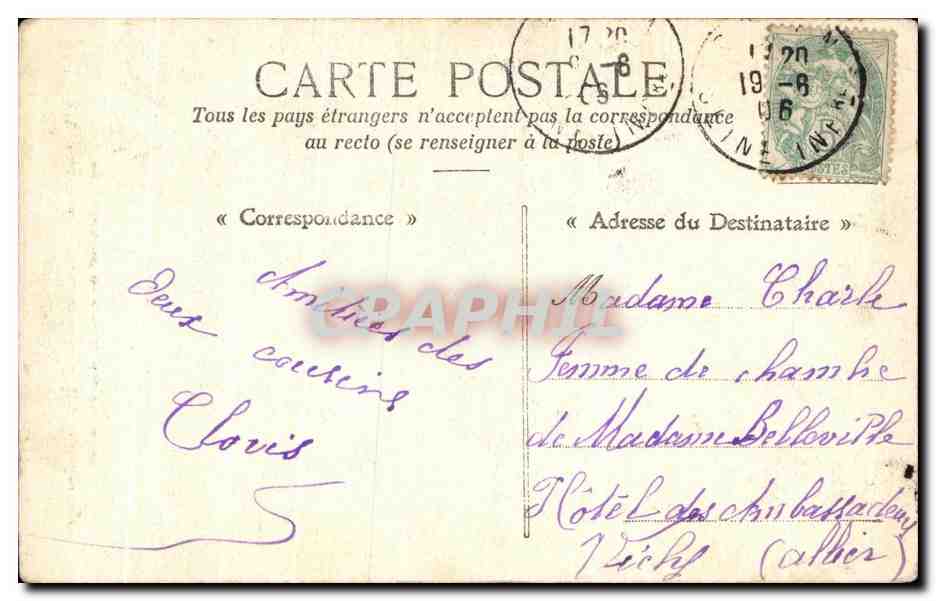 CARTE POSTALE
Tous les pays étrangers n'acceptent pas la correspondance
au recto (se renseigner à la poste)
17 20
-6
06
20
19 -6
06
INFRE
POSTES
« Correspondance »
Amitiés des
deux
cousins
Clovis
« Adresse du Destinataire »
Madame Charle
Femme de chambre
de Madame Belleville
Hôtel des Ambassadeurs
Vichy (allier)
CPAPHIL